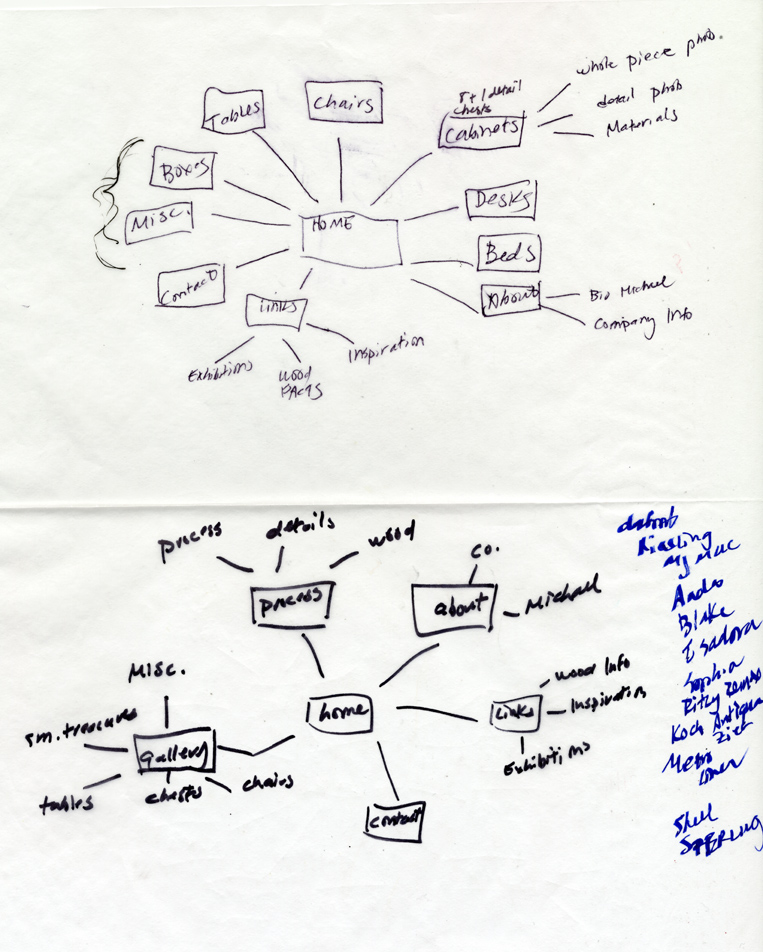 whole piece photo.
detail photo
Materials
5 + 1 detail
chests
Cabinets
Chairs
Tables
Boxes
Misc.
HOME
Desks
Beds
Contact
Links
About
Bio Michael
Company Info
Exhibitions
Wood
FACTS
Inspiration
process
details
wood
process
co.
about
Michael
Misc.
sm. treasures
gallery
tables
chests
chairs
home
Links
wood Info
Inspiration
Exhibitions
contact
my mac
Blake
Isadora
Sophia
Koch Antiques
Metro
Shell
SPERLING